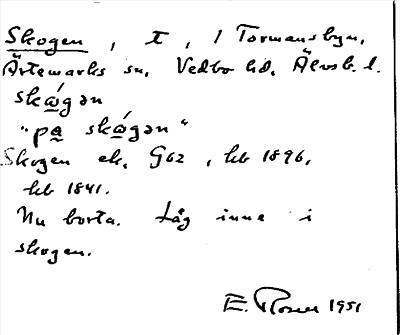 Skogen, t, / Tormansbyn,
Ärtemarks sn, Vedbo hd, Älvsb. l.
skώ̲gən
"pa̲ skώ̲gən"
Skogen ek, G62, hb 1896,
hb 1841.
Nu borta. Låg inne i
skogen.
E. Rosell 1951